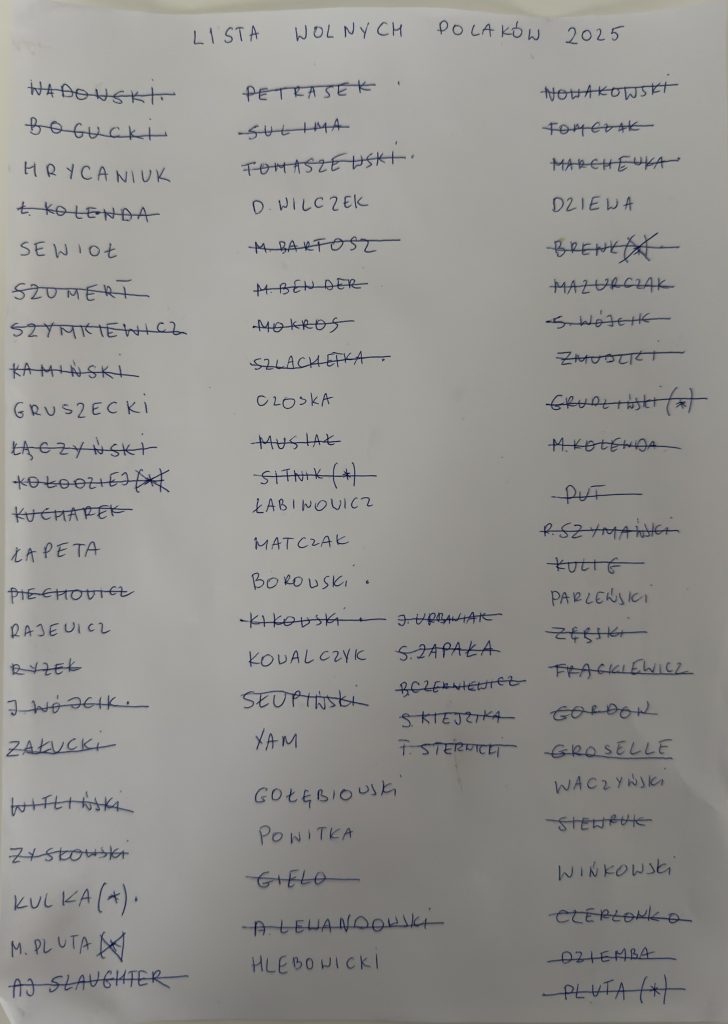 LISTA WOLNYCH POLAKÓW 2025
WADOWSKI.
BOGUCKI
HRYCANIUK
Ł. KOLENDA
SEWIOŁ
SZUMERT
SZYMKIEWICZ
KAMIŃSKI
GRUSZECKI
ŁĄCZYŃSKI
KOŁODZIEJ (*)
KUCHAREK
ŁAPETA
PIECHOWICZ
RAJEWICZ
RYŻEK
J WÓJCIK.
ZAŁUCKI
WITLIŃSKI
ZYSKOWSKI
KULKA (*).
M. PLUTA (*)
AJ SLAUGHTER
PETRASEK .
SULIMA
TOMASZEWSKI.
D. WILCZEK
M. BARTOSZ
M. BENDER
MOKROS
SZLACHETKA.
CZOSKA
MUSIAŁ
SITNIK (*)
ŁABINOWICZ
MATCZAK
BOROWSKI .
KIKOWSKI .
KOWALCZYK
SŁUPIŃSKI
YAM
GOŁĘBIOWSKI
POWITKA
GIELO
A. LEWANDOWSKI
HLEBOWICKI
J. URBANIAK
S. ZAPAŁA
B CZERNIEWICZ
S. KIEJZIKA
T. STERNICKI
NOWAKOWSKI
TOMCZAK
MARCHEWKA.
DZIEWA
BRENK (*).
MAZURCZAK
S. WÓJCIK
ZMUDZKI
GRUDZIŃSKI (*)
M. KOLENDA
PUT
P. SZYMAŃSKI
KULIG
PARZEŃSKI
ZĘBSKI
FRĄCKIEWICZ
GORDON
GROSELLE
WACZYŃSKI
SIEWRUK
WIŃKOWSKI
CZERLONKO
DZIEMBA
PLUTA (*)